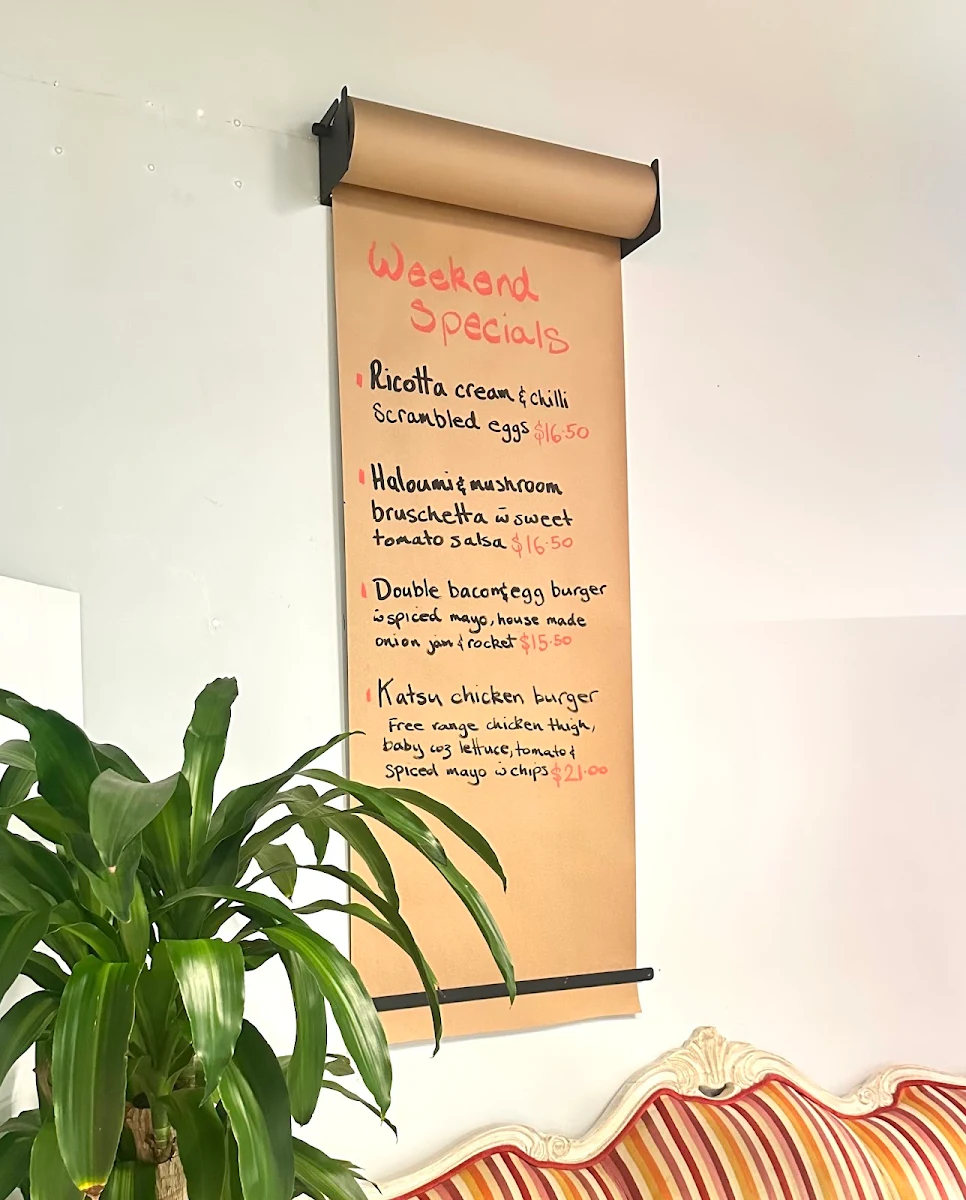 Weekend
Specials
Ricotta cream & chilli
Scrambled eggs $16.50
Haloumi & mushroom
bruschetta w̄ sweet
tomato salsa $16.50
Double bacon & egg burger
w̄ spiced mayo, house made
onion jam & rocket $15.50
Katsu chicken burger
Free range chicken thigh,
baby coz lettuce, tomato &
Spiced mayo w̄ chips $21.00